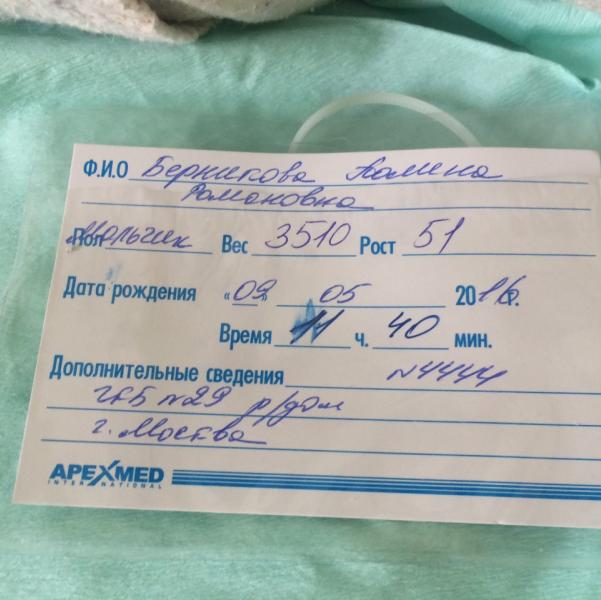 Ф.И.О Берникова Полина
Романовна
Пол Мальчик Вес 3510 Рост 51
Дата рождения «09» 05 2016г.
Время 11 ч. 40 мин.
Дополнительные сведения N4444
ГКБ N29 р/дом
г. Москва
APEXMED
INTERNATIONAL